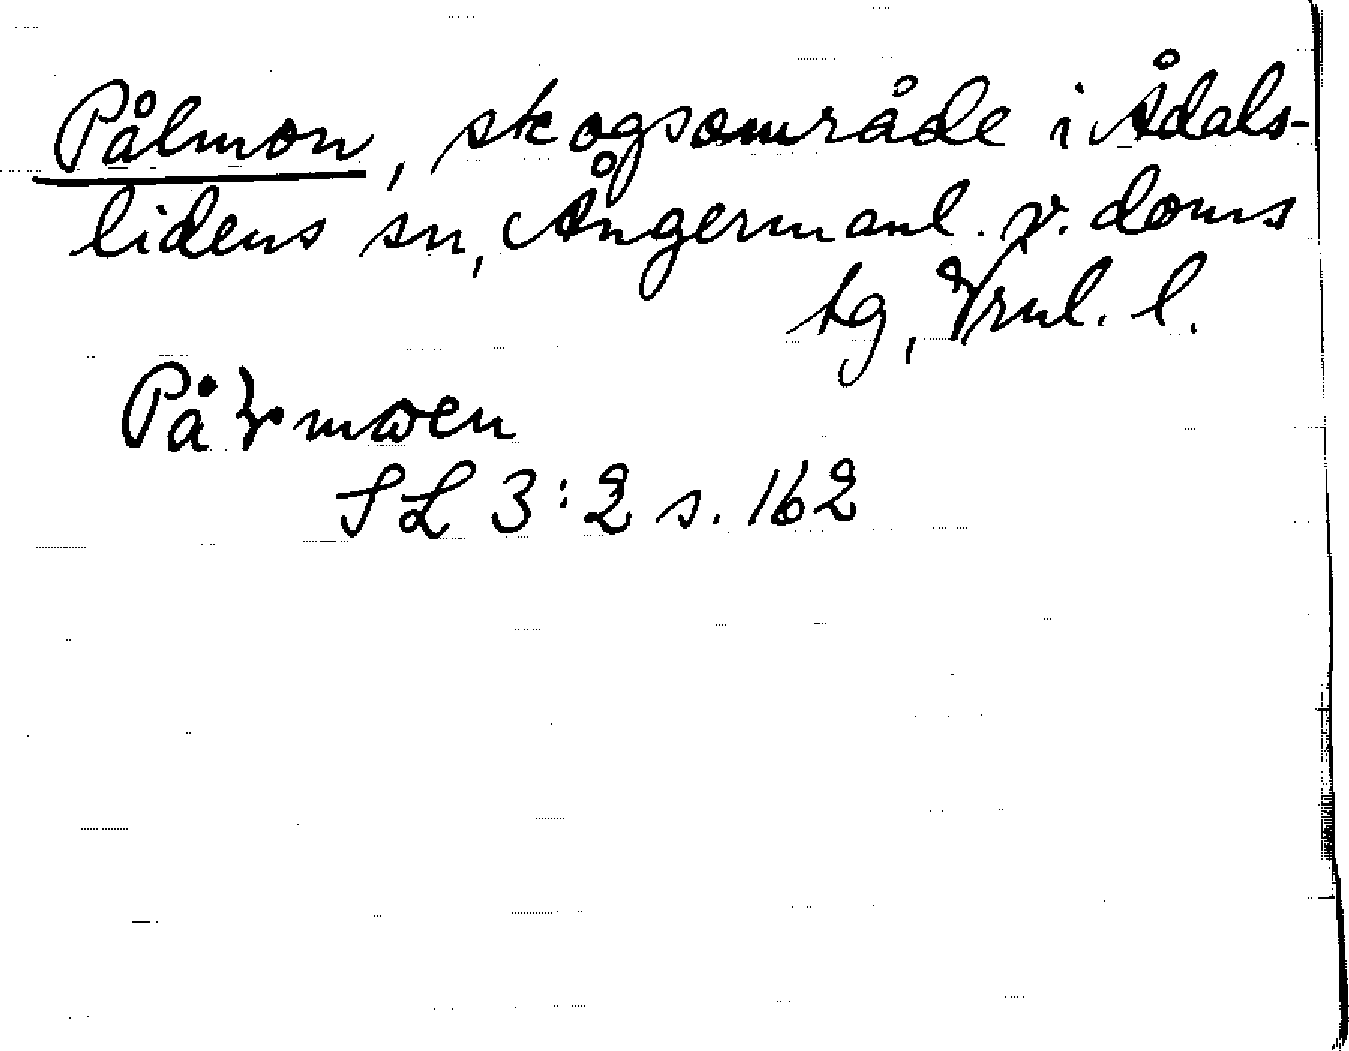 Pålmon, skogsområde i Ådals-
lidens sn, Ångermanl. v. doms
tg, Vrnl. l.
moen
SL 3:2 s. 162